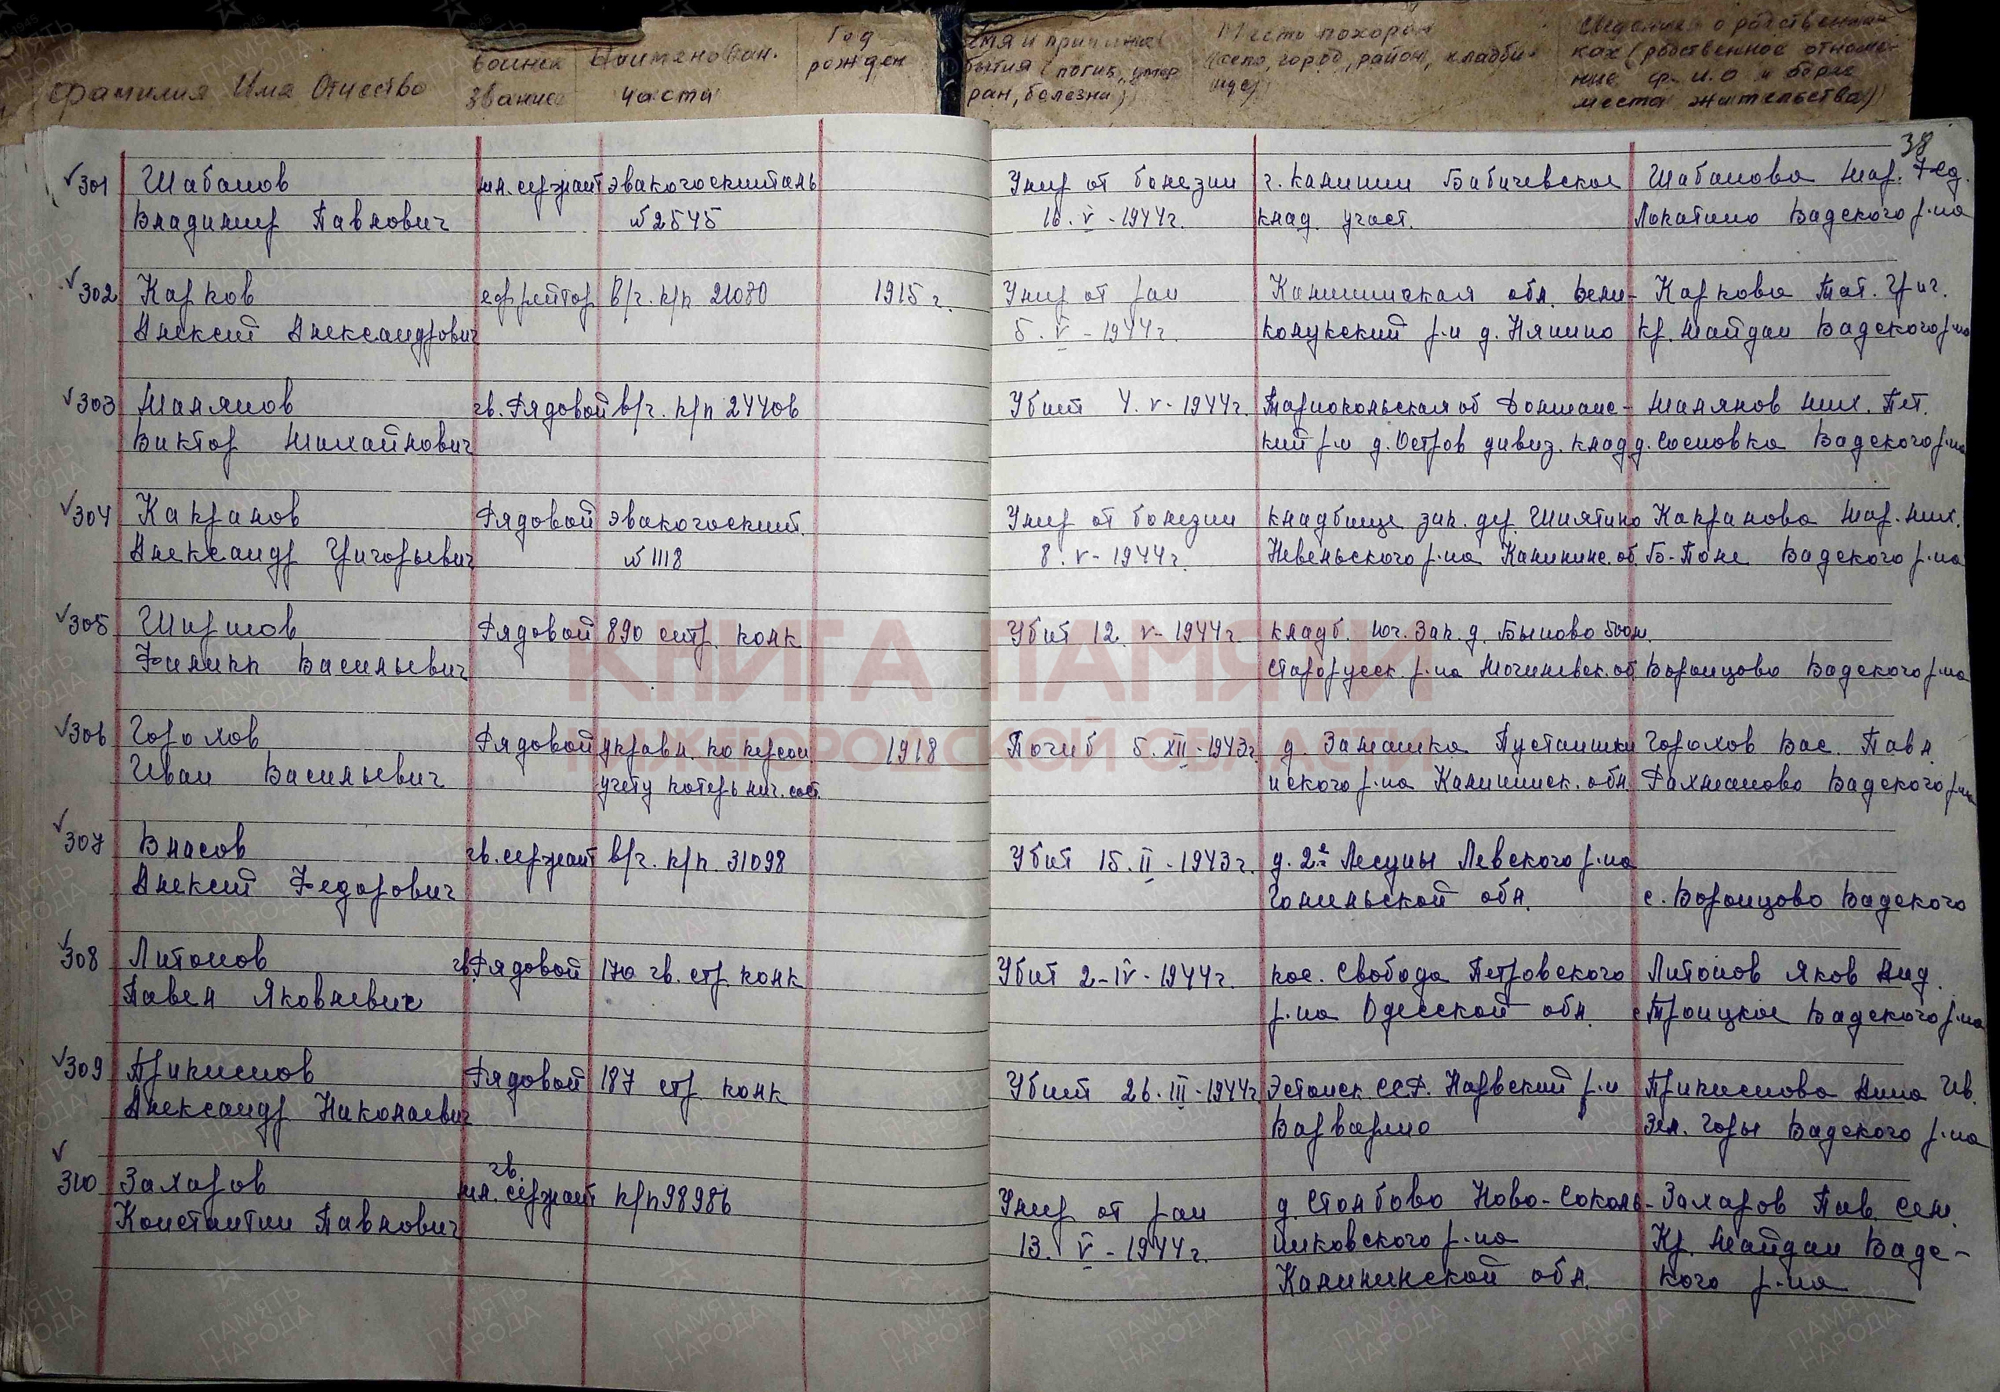 Фамилия Имя Отчество
воинск звание
Наименован. части
Год рожден
бытия (погиб, умер ран, болезни)
Место похорон (село, город, район, кладбище)
сведения о родственниках (родственное отношение ф.и.о и адрес места жительства)
38
301 Шабанов мл. сержант эвакогоспиталь Умер от болезни г. Калинин Бабачевское Шабанова Мар. Фед.
Владимир Павлович №2545 16. V - 1944г. клад. участ. Лопатино Вадского р-на
302 Карпов ефрейтор в/ч. п/п 21080 1915 г. Умер от ран Калининская обл. Вели- Карпова Тат. Григ.
Алексей Александрович 5. V - 1944г. колукский р-н д. Иляшино Кр. Майдан Вадского р-на
303 Малянов гв. Рядовой в/ч. п/п 24406 Убит 4. V - 1944г. Малянов Мих. Пет.
Виктор Михайлович кий р-н д. Остров дивиз. клад д. Сосновка Вадского р-на
304 Капранов Рядовой эвакогоспит. Умер от болезни кладбище зап. дер. Шляпино Капранова Мар. Мих.
Александр Григорьевич №1118 8. V - 1944г. Невельского р-на Калининс. об Б-Поле Вадского р-на
305 Ширшов Рядовой 890 стр. полк Убит 12. V - 1944г кладб. юг. зап. д. Быково 500м.
Филипп Васильевич Старорусск. р-на Вадского р-на Воронцово
306 Горохов Рядовой управл. по персон. 1918 Погиб 5. XII - 1943г. д. Замошка Пустошки Горохов Вас. Павл.
Иван Васильевич учету потерь нич. сост. нского р-на Калининск. обл. Рахманово Вадского р-на
307 Власов гв. сержант в/ч. п/п. 31098 Убит 15. II - 1943г. д. 2е Лесуны Левского р-на
Алексей Федорович Гомельской обл. с. Воронцово Вадского
308 Литонов гв. Рядовой 170 гв. стр. полк Убит 2 - IV - 1944г. пос. Свобода Петровского Литонов Яков Анд.
Павел Яковлевич р-на Одесской обл. с Троицкое Вадского р-на
309 Прикислов Рядовой 187 стр полк Убит 26. III - 1944г Эстонск ССР. Нарвский р-н Прикислова Анна Ив.
Александр Николаевич Варварино Зел. Горы Вадского р-на
гв.
310 Захаров мл. сержант п/п 98986 Умер от ран д. Столбово Ново-Соколь- Захаров Пав. Сем.
Константин Павлович 13. V - 1944г. никовского р-на Кр. Майдан Вадс-
Калининской обл. кого р-на
КНИГА ПАМЯТИ
НИЖЕГОРОДСКОЙ ОБЛАСТИ
ПАМЯТЬ НАРОДА